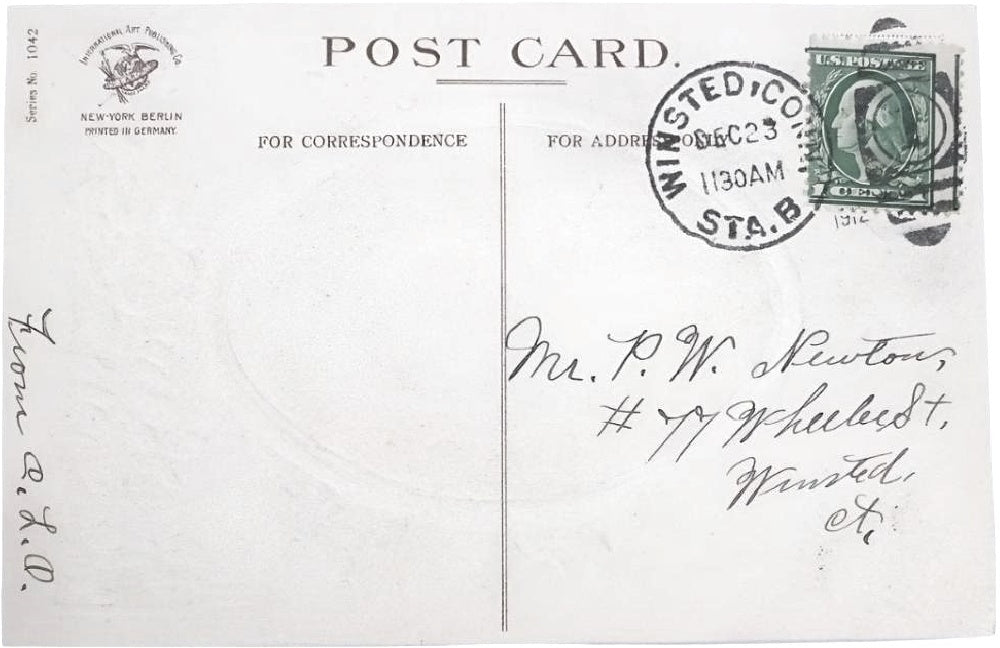 Series No. 1042
INTERNATIONAL ART PUBLISHING CO
NEW-YORK BERLIN
PRINTED IN GERMANY.
POST CARD.
FOR CORRESPONDENCE
FOR ADDRESS ONLY
WINSTED, CON
DEC 23
1130AM
1912
STA. B
U.S. POSTAGE
Mr. P. W. Newton,
# 77 Wheeler St,
Winsted,
Ct,
From